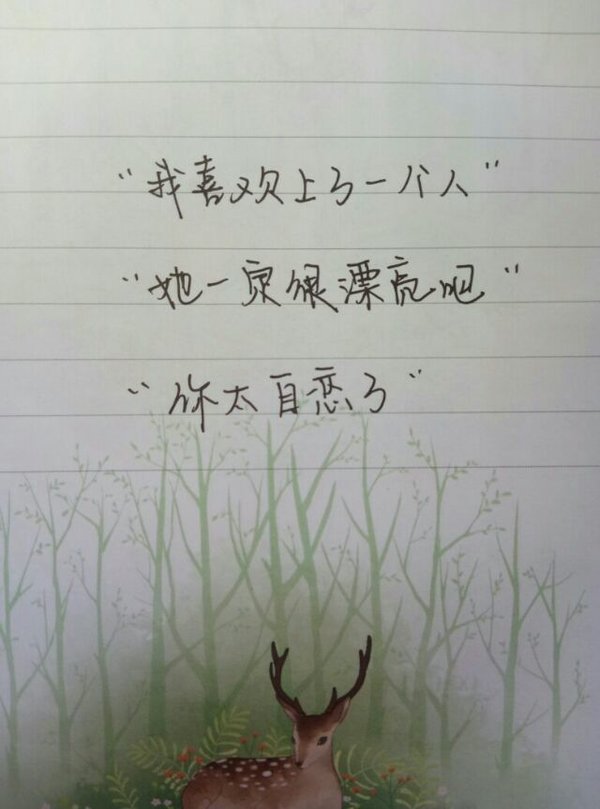 “我喜欢上了一个人”
“她一定很漂亮吧”
“你太自恋了”